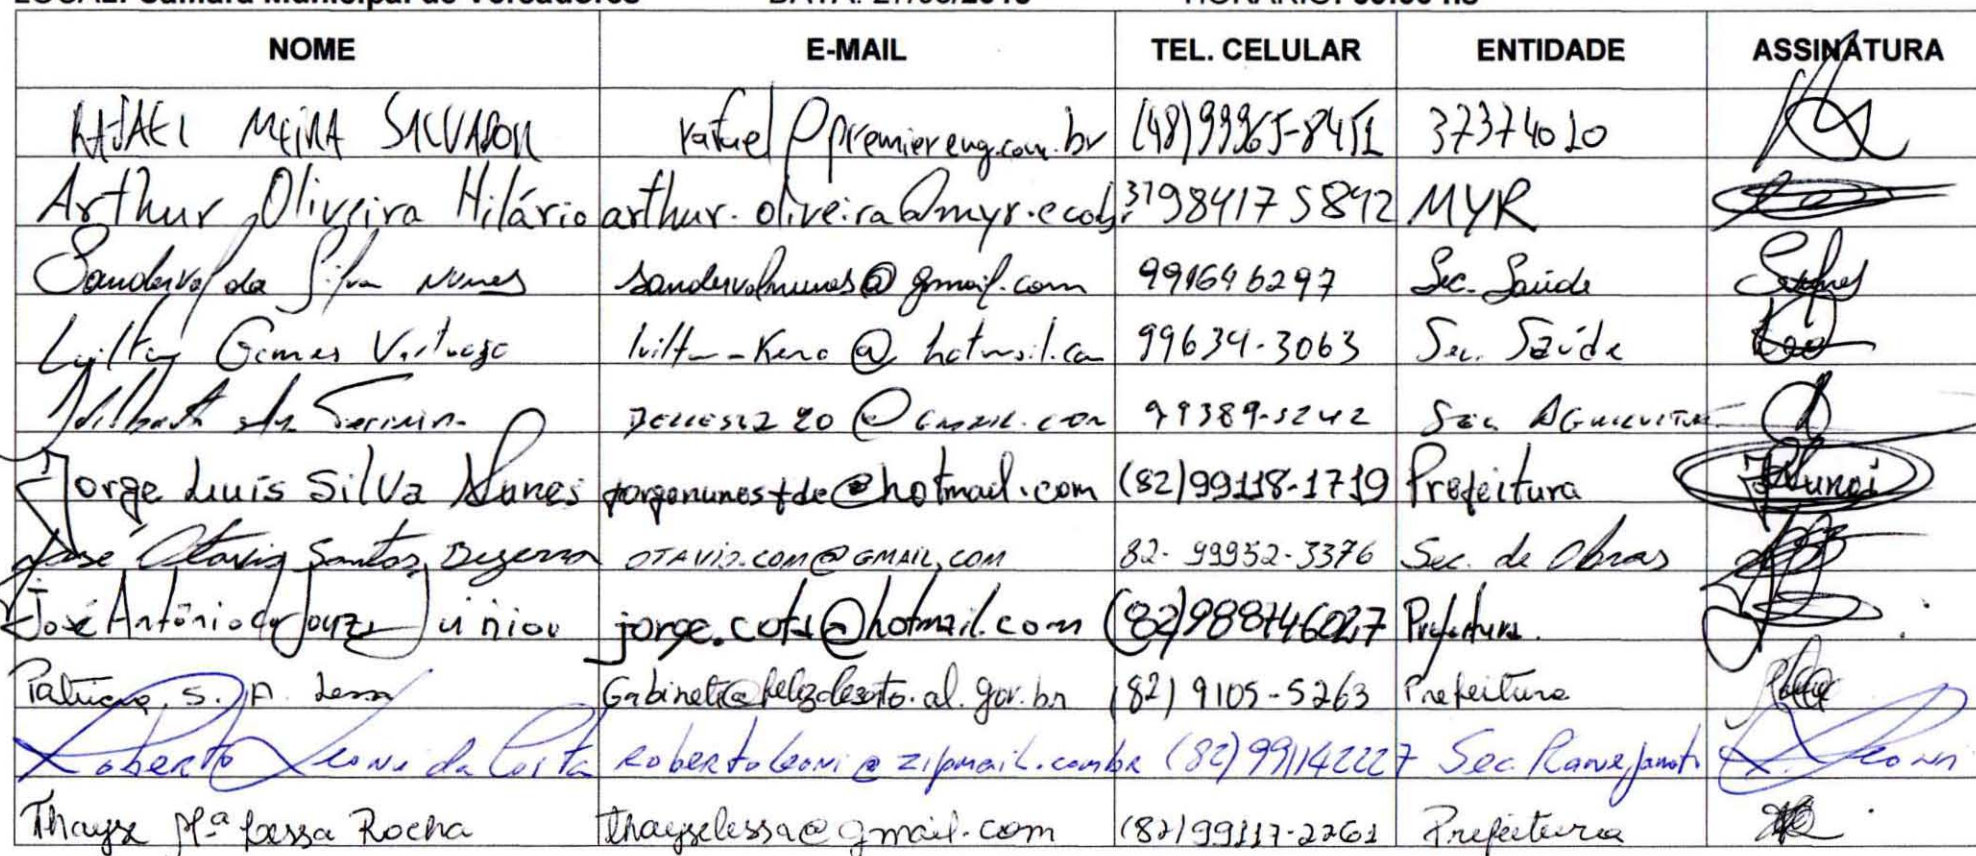 LOCAL: Câmara Municipal de Vereadores DATA: 27/03/2018 HORÁRIO:
NOME E-MAIL TEL. CELULAR ENTIDADE ASSINATURA
RAFAEL MEIRA SALVADOR rafael@premiereng.com.br (48)99965-8451 37374010
Arthur Oliveira Hilário arthur.oliveira@myr.eco.br 31984175892 MYR
Sanderval da Silva Nunes sandervalnunes@gmail.com 991646297 Sec. Saúde
Gomes @hotmail.com 99634-3063 Sec. Saúde
20@GMAIL.COM 99389-5242 Sec. Agricultura
Jorge Luis Silva Nunes jorgenunestde@hotmail.com (82)99118-1719 Prefeitura JNunes
José Otavio Santos Bezerra OTAVIO.COM@GMAIL.COM 82-99952-3376 Sec. de Obras
José Antônio de Souza Júnior jorge.cots@hotmail.com (82)988746027 Prefeitura.
S. A. Lessa Gabinete@felizdeserto.al.gov.br (82) 9105-5263 Prefeitura
Roberto Leoni da Costa Robertoleoni@zipmail.com.br (82)991142227 Sec. Planejamento Leoni
Thayse Mª Lessa Rocha thayselessa@gmail.com (82)99117-2261 Prefeitura